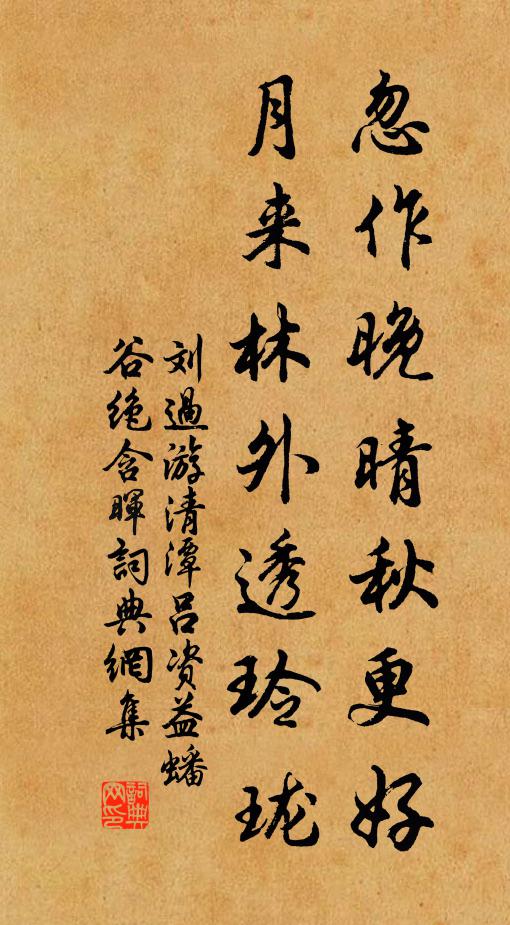 忽作晚晴秋更好
月来林外透玲珑
刘過游清潭吕资益蟠
谷绝含暉詞典網集
詞典网印